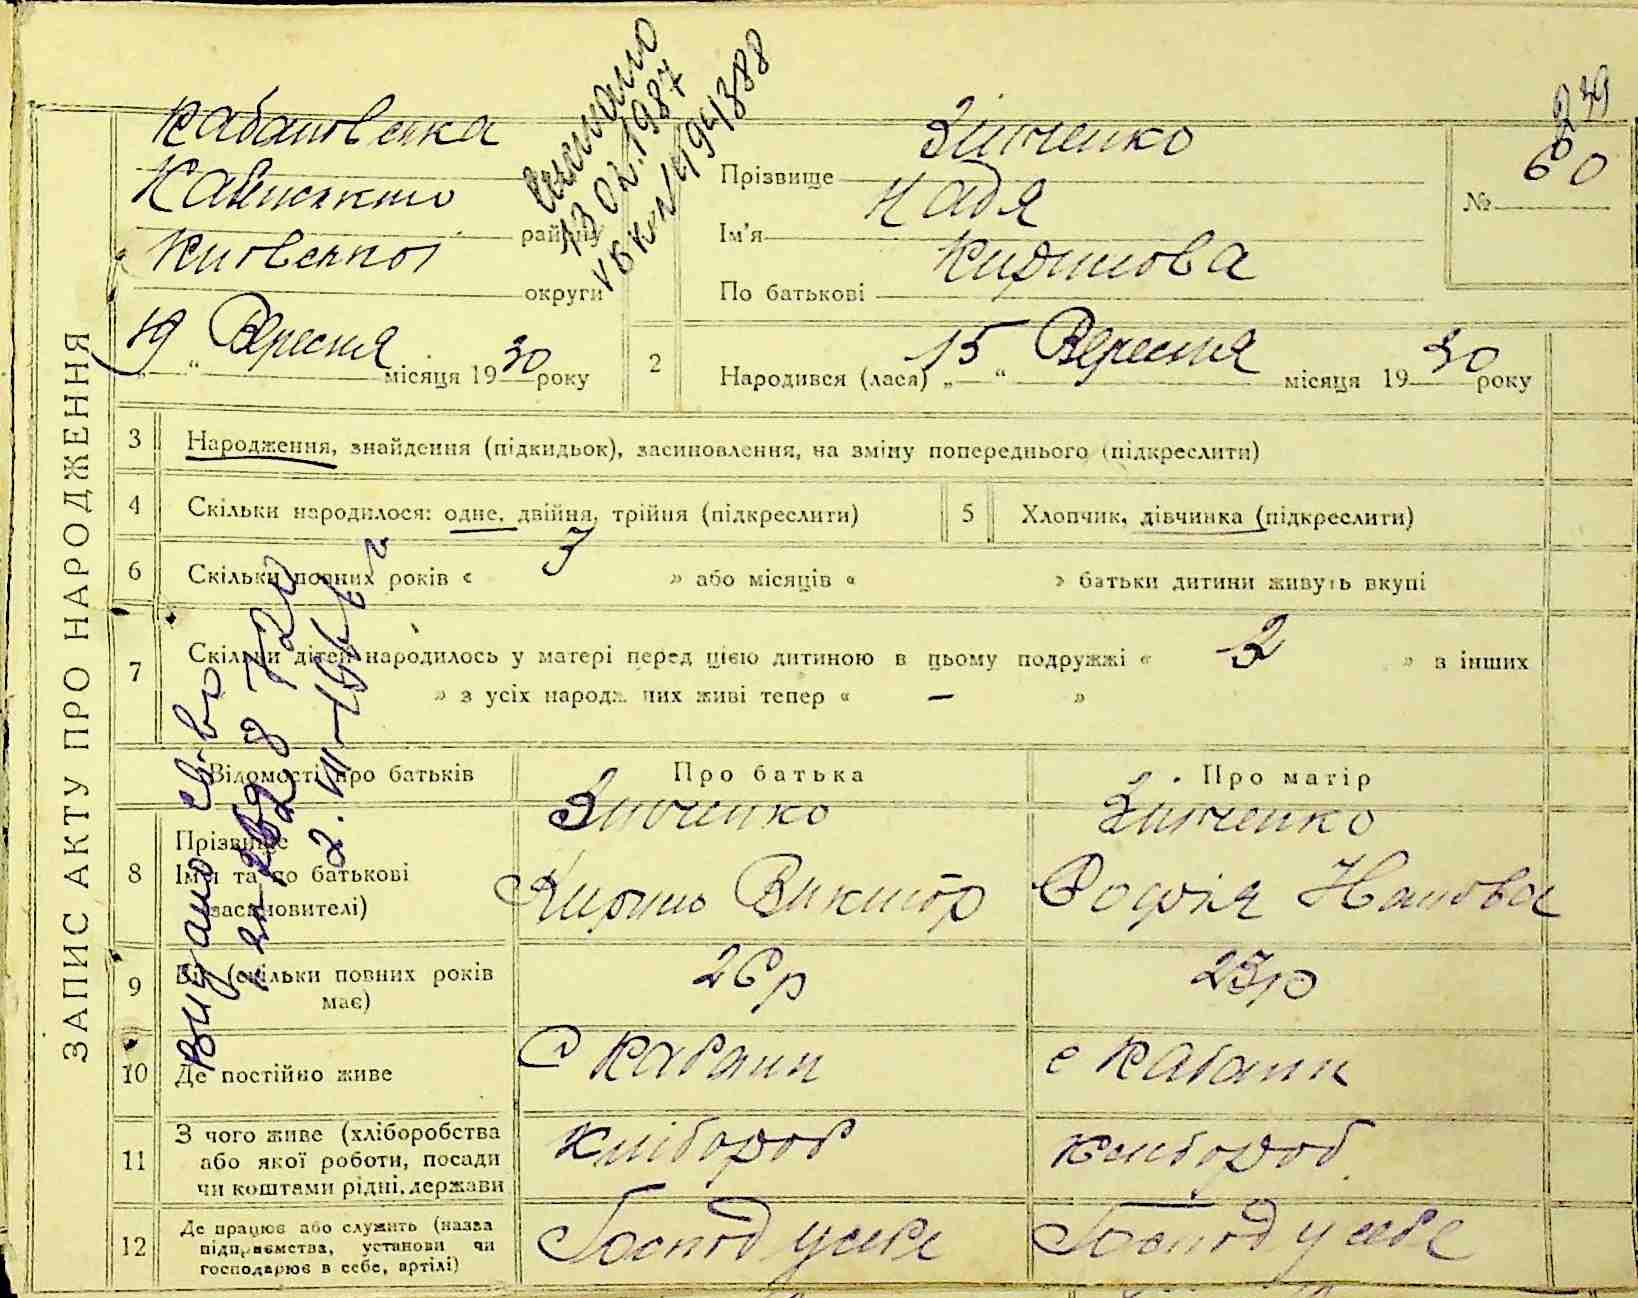 ЗАПИС АКТУ ПРО НАРОДЖЕННЯ
Кабановська
району
Київської
округи
19 Вересня місяця 1930 року
13.02.1987
239
Прізвище Зінченко
№ 60
Ім'я Надя
По батькові Кирилова
2 Народився (лася) „15“ Вересня місяця 1930 року
3 Народження, знайдення (підкидьок), засиновлення, на зміну попереднього (підкреслити)
4 Скільки народилося: одне, двійня, трійня (підкреслити)
5 Хлопчик, дівчинка (підкреслити)
6 Скільки повних років « 7 » або місяців « » батьки дитини живуть вкупі
7 Скільки дітей народилось у матері перед цією дитиною в цьому подружжі « 2 » в інших
» з усіх народж них живі тепер « – »
Відомості про батьків
Про батька
Про матір
8 Прізвище
Ім'я та по батькові
(засиновителі)
Зинченко
Кирило Виктор
Зінченко
Софія Налова
9 Вік (скільки повних років
має)
26 р
23 р
10 Де постійно живе
с Кабани
с Кабани
11 З чого живе (хліборобства
або якої роботи, посади
чи коштами рідні, держави
хлібороб
хлибороб
12 Де працює або служить (назва
підприємства, установи чи
господарює в себе, артілі)
Господ у себе
Господ у себе
Видано св-во